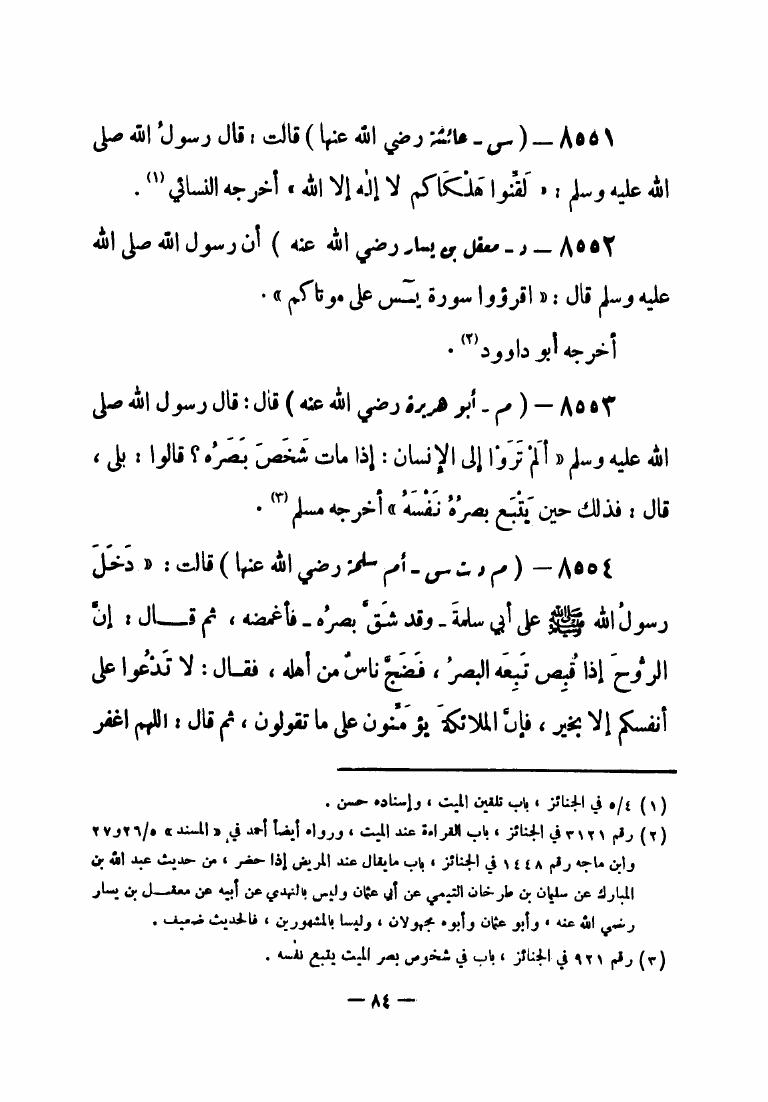 ٨٥٥١ – ( س - عائشة رضي الله عنها ) قالت : قال رسولُ الله صلى
الله عليه وسلم : « لَقِّنُوا هَلْكَاكم لا إله إلا الله » أخرجه النسائي (١) .
٨٥٥٢ – د - معقل بن يسار رضي الله عنه ) أن رسول الله صلى الله
عليه وسلم قال : « اقرؤوا سورة يـس على موتاكم » .
أخرجه أبو داوود (٢) .
٨٥٥٣ – ( م - أبو هريرة رضي الله عنه ) قال : قال رسول الله صلى
الله عليه وسلم « أَلَمْ تَرَوْا إلى الإنسان : إذا مات شَخَصَ بَصَرُه ؟ قالوا : بلى ،
قال : فذلك حين يَتْبَع بصرُهُ نَفْسَهُ » أخرجه مسلم (٣) .
٨٥٥٤ – ( م د ت س - أم سلمة رضي الله عنها ) قالت : « دَخَلَ
رسولُ الله ﷺ على أبي سلمةَ - وقد شَقَّ بصرُه - فأغمضه ، ثم قــال : إنَّ
الرُّوحَ إذا قُبِض تَبِعَه البصرُ ، فَضَجَّ ناسٌ من أهله ، فقـال : لا تَدْعُوا على
أنفسكم إلا بخير ، فإنَّ الملائكةَ يُؤَمِّنون على ما تقولون ، ثم قال : اللهم اغفر
(١) ٤/٥ في الجنائز ، باب تلقين الميت ، وإسناده حسن .
(٢) رقم ٣١٢١ في الجنائز ، باب القراءة عند الميت ، ورواه أيضاً أحمد في « المسند » ٥/٢٦ و٢٧
وابن ماجه رقم ١٤٤٨ في الجنائز ، باب مايقال عند المريض إذا حضر ، من حديث عبد الله بن
المبارك عن سليمان بن طرخان التيمي عن أبي عثمان وليس بالنهدي عن أبيه عن معقــل بن يسار
رضي الله عنه ، وأبو عثمان وأبوه مجهولان ، وليسا بالمشهورين ، فالحديث ضعيف .
(٣) رقم ٩٢١ في الجنائز ، باب في شخوص بصر الميت يتبع نفسه .
– ٨٤ –